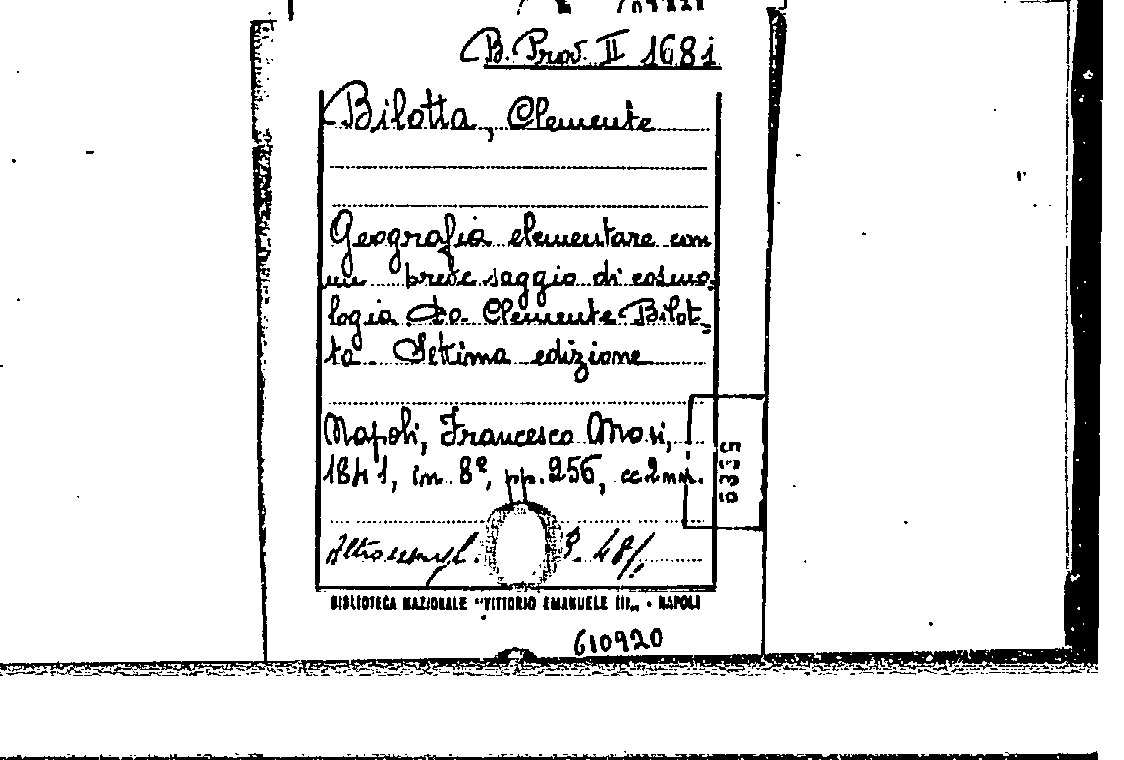 B. Prov. II 1681
Bilotta, Clemente
Geografia elementare con
un breve saggio di cosmo=
logia da Clemente Bilot=
ta. Settima edizione
Napoli, Francesco Masi,
1841, in 8°, pp. 256, cc 2 nn.
Altro esempl. 48/
BIBLIOTECA NAZIONALE "VITTORIO EMANUELE III„ - NAPOLI
610920